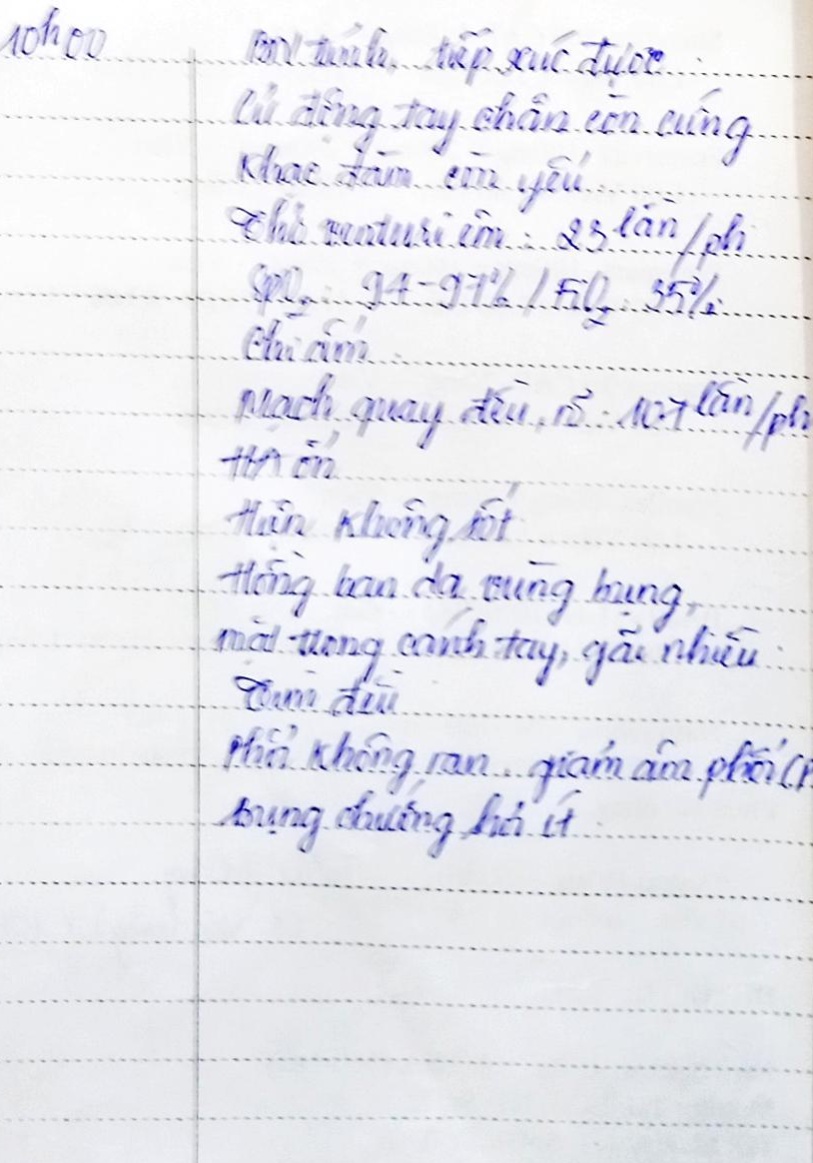 10h00 BN tỉnh, tiếp xúc được
Cử động tay chân còn cứng
Khạc đàm còn yếu
Thở venturi êm : 23 lần/ph
SpO2 : 94-97% / FiO2 : 35%
Chi ấm
Mạch quay đều, rõ : 107 lần/ph
HA ổn
Hiện không sốt
Hồng ban da vùng bụng,
mặt trong cánh tay, gãi nhiều
Tim đều
Phổi không ran, giảm âm phổi (P
Bụng chướng hơi ít